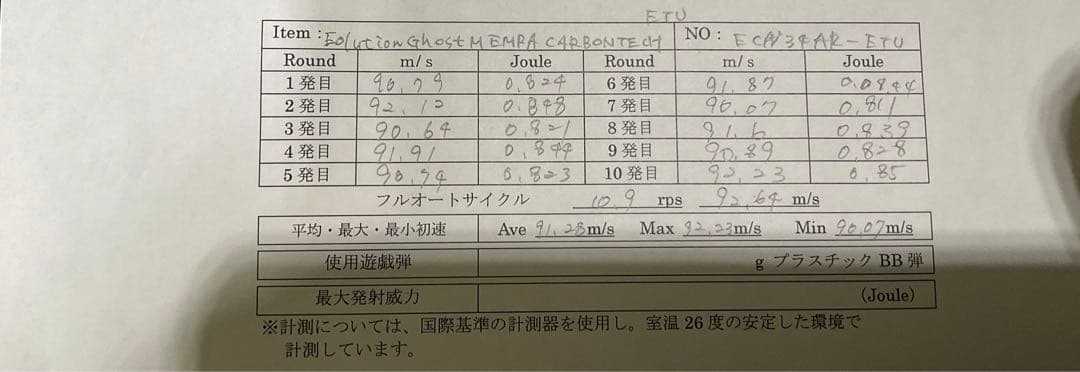 ETU
Item : Eolution Ghost M EMRA CARBONTECH NO : ECN34AR-ETU
Round m/s Joule Round m/s Joule
1発目 90,79 0,824 6発目 91,87 0,0844
2発目 92,12 0,848 7発目 90,07 0,811
3発目 90,64 0,821 8発目 91,6 0,839
4発目 91,91 0,844 9発目 90,89 0,828
5発目 90,74 0,823 10発目 92,23 0,85
フルオートサイクル 10,9 rps 92,64 m/s
平均・最大・最小初速 Ave 91,28m/s Max 92,23m/s Min 90,07m/s
使用遊戯弾 g プラスチック BB 弾
最大発射威力 (Joule)
※計測については、国際基準の計測器を使用し。室温 26 度の安定した環境で
計測しています。